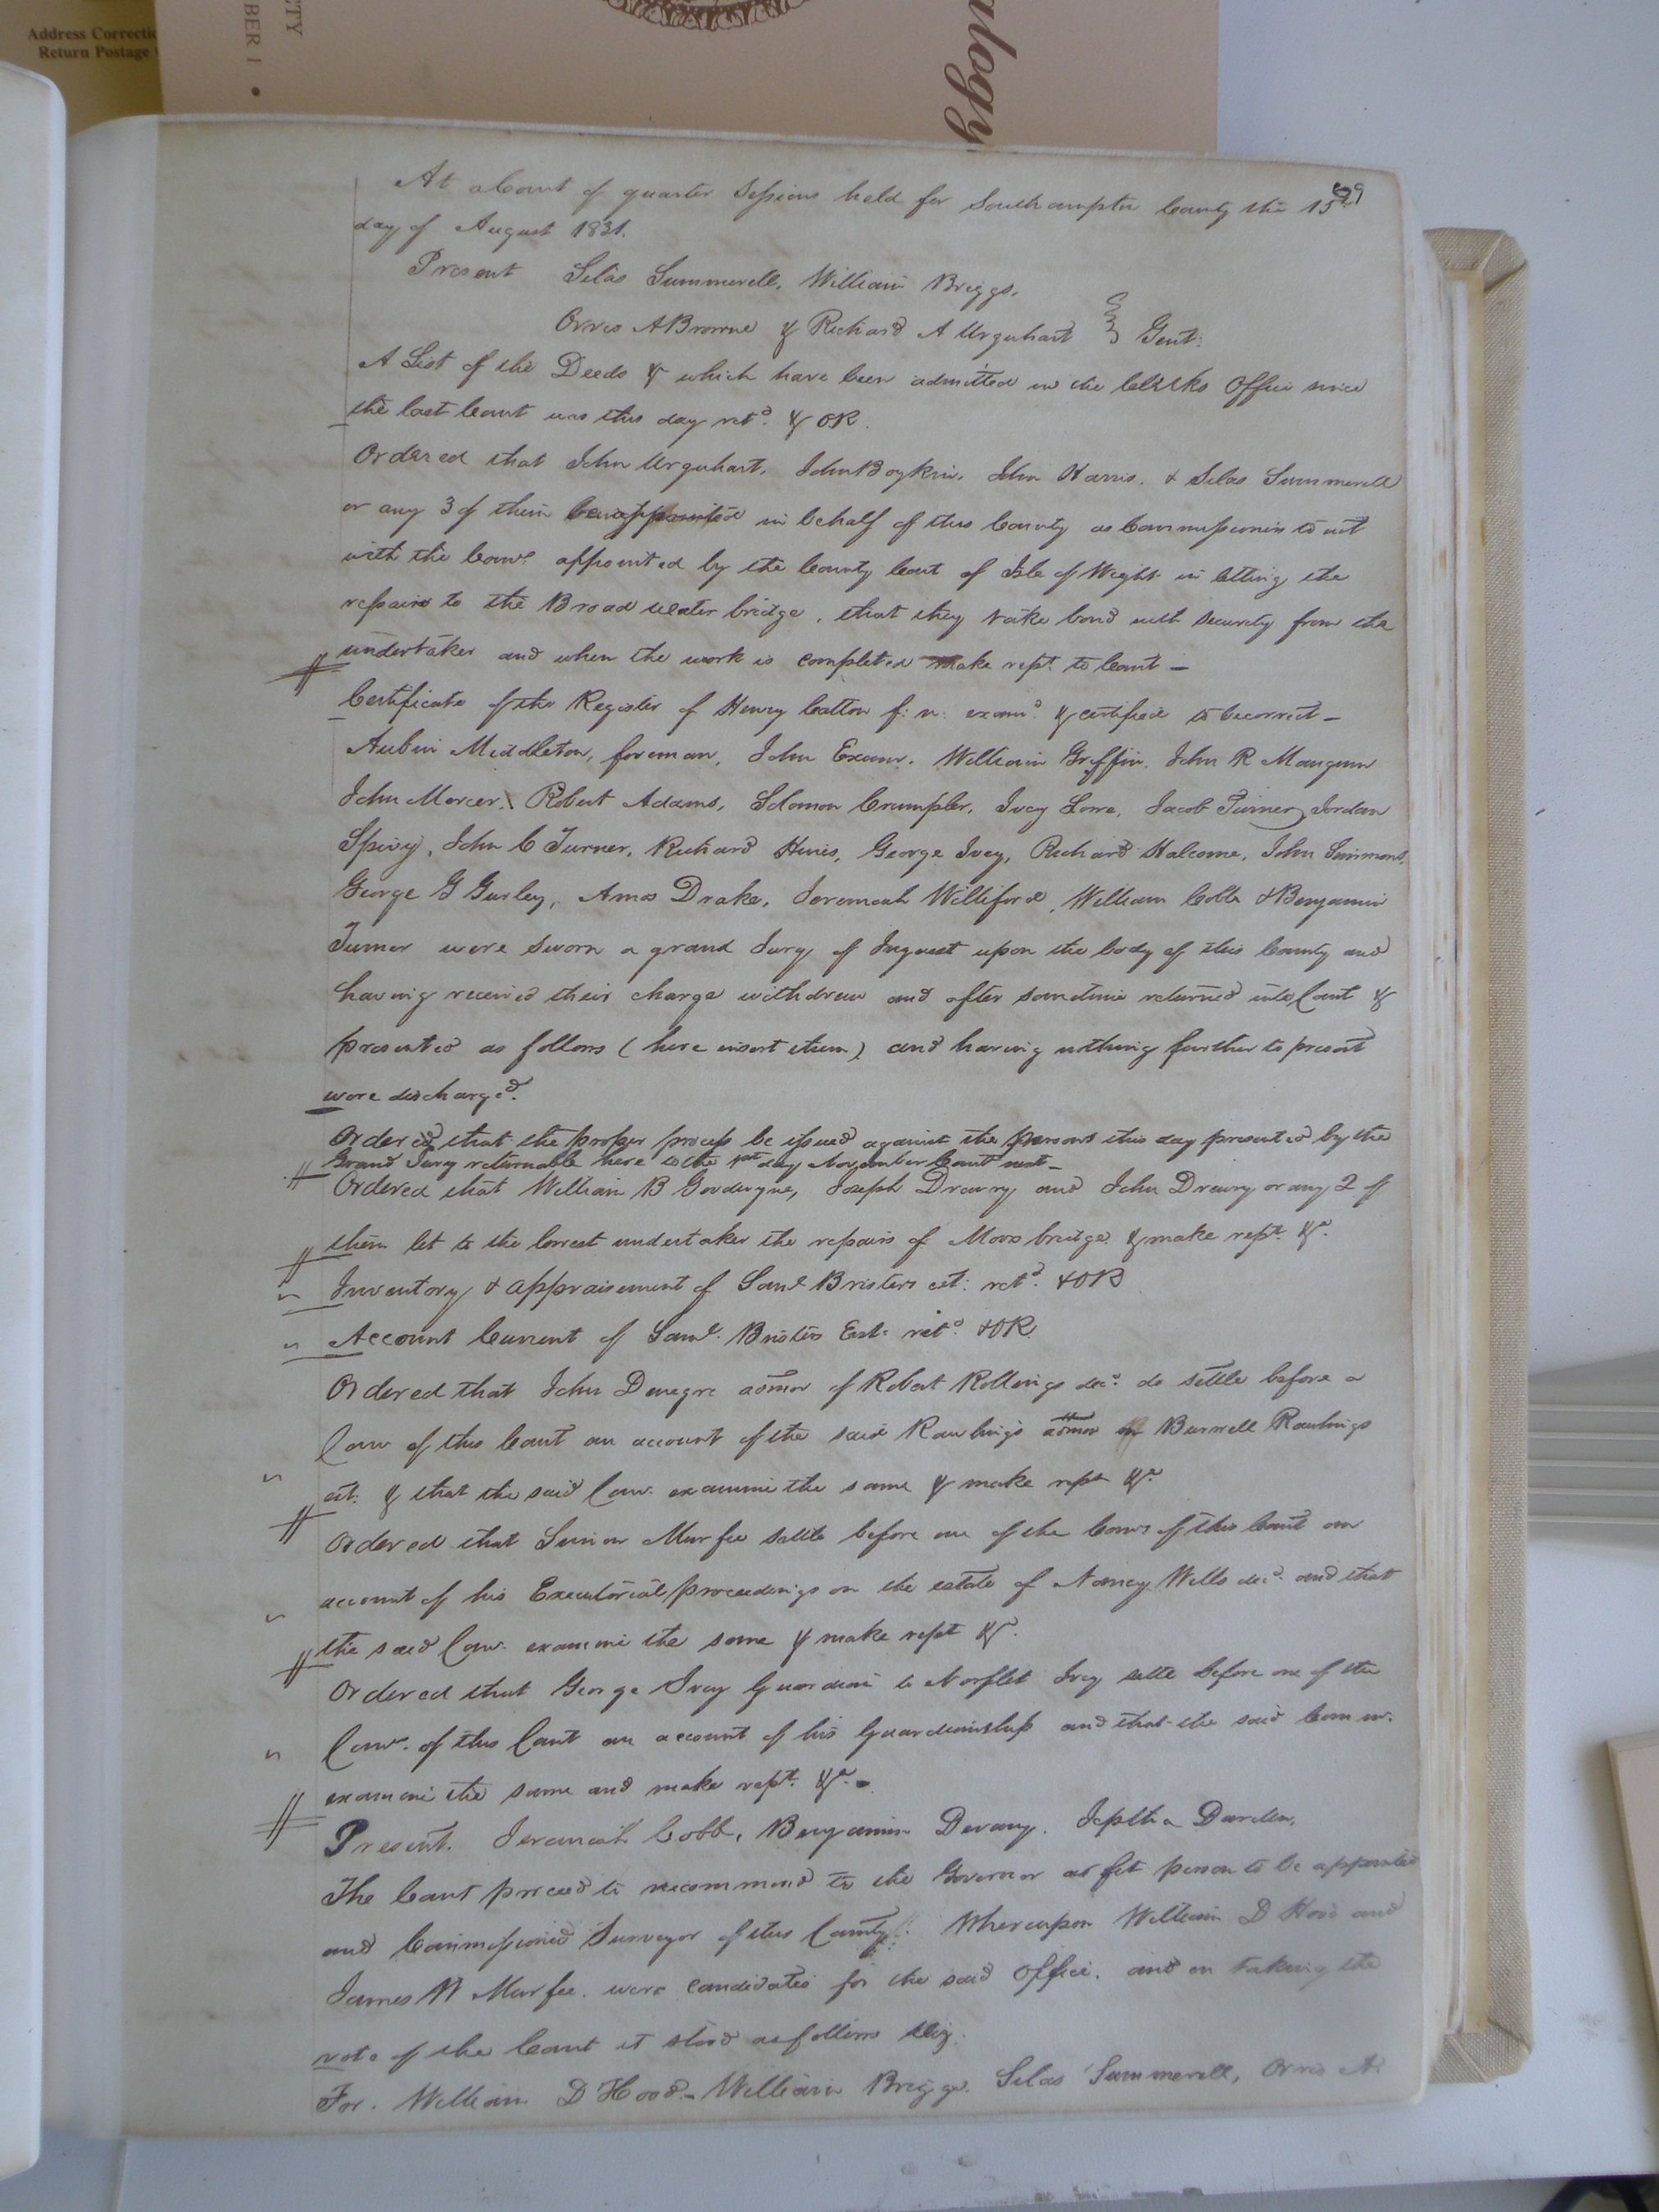 Address Correctio
Return Postage
CTY
BER 1 •
alogy
79
At a Court of quarter Sessions held for Southampton County the 15th
day of August 1831.
Present Silas Summerell, William Briggs,
Orris A Browne & Richard A Urquhart } Gent:
A List of the Deeds & which have been admitted in the Clerks Office since
the last Court was this day retd. & OR.
Ordered that John Urquhart, John Boykin, John Harris, & Silas Summerell
or any 3 of them be appointed in behalf of this County as Commissioners to act
with the Comrs appointed by the County Court of Isle of Wight in letting the
repairs to the Broad water bridge, that they take bond with security from the
undertaker and when the work is completed make rept. to Court –
Certificate of the Register of Henry Catton f: n: examd. & certified to be correct –
Aubin Middleton, foreman, John Exum, William Griffin, John R Mangum
John Mercer, Robert Adams, Solomon Crumpler, Ivey Lowe, Jacob Turner, Jordan
Spivy, John C Turner, Richard Hines, George Ivey, Richard Halcome, John Simmons,
George G Gurley, Amos Drake, Jeremiah Williford, William Cobb & Benjamin
Turner were sworn a grand Jury of Inquest upon the body of this County and
having received their charge withdrew and after sometime returned into Court &
presented as follows (here insert them) and having nothing further to present
were discharged.
Ordered that the proper process be issued against the persons this day presented by the
Grand Jury returnable here to the 1st day November Court next –
Ordered that William B Goodwyne, Joseph Drewry and John Drewry or any 2 of
them let to the lowest undertaker the repairs of Moors bridge & make rept. &c.
Inventory & appraisement of Saml Bristers est: retd. & OR
Account Current of Saml. Bristers Est. retd. & OR
Ordered that John Denegre admor of Robert Rollings decd. do settle before a
Com of this Court an account of the said Rawlings admor of Burwell Rawlings
est. & that the said Com. examine the same & make rept &c.
Ordered that Simon Murfee settle before one of the Comrs of this Court an
account of his Executorial proceedings on the estate of Nancy Wills decd. and that
the said Com. examine the same & make rept &c.
Ordered that George Ivey Guardian to Norflet Ivey settle before one of the
Comrs. of this Court an account of his Guardianship and that the said Comm.
examine the same and make rept. &c. –
Present. Jeremiah Cobb, Benjamin Devany, Jeptha Darden,
The Court proceed to recommend to the Governor as fit person to be appointed
and Commissioned Surveyor of this County: Whereupon William D Hood and
James W Murfee. were candidates for the said office. and on taking the
vote of the Court it stood as follows viz:
For. William D Hood – William Briggs, Silas Summerell, Orris A